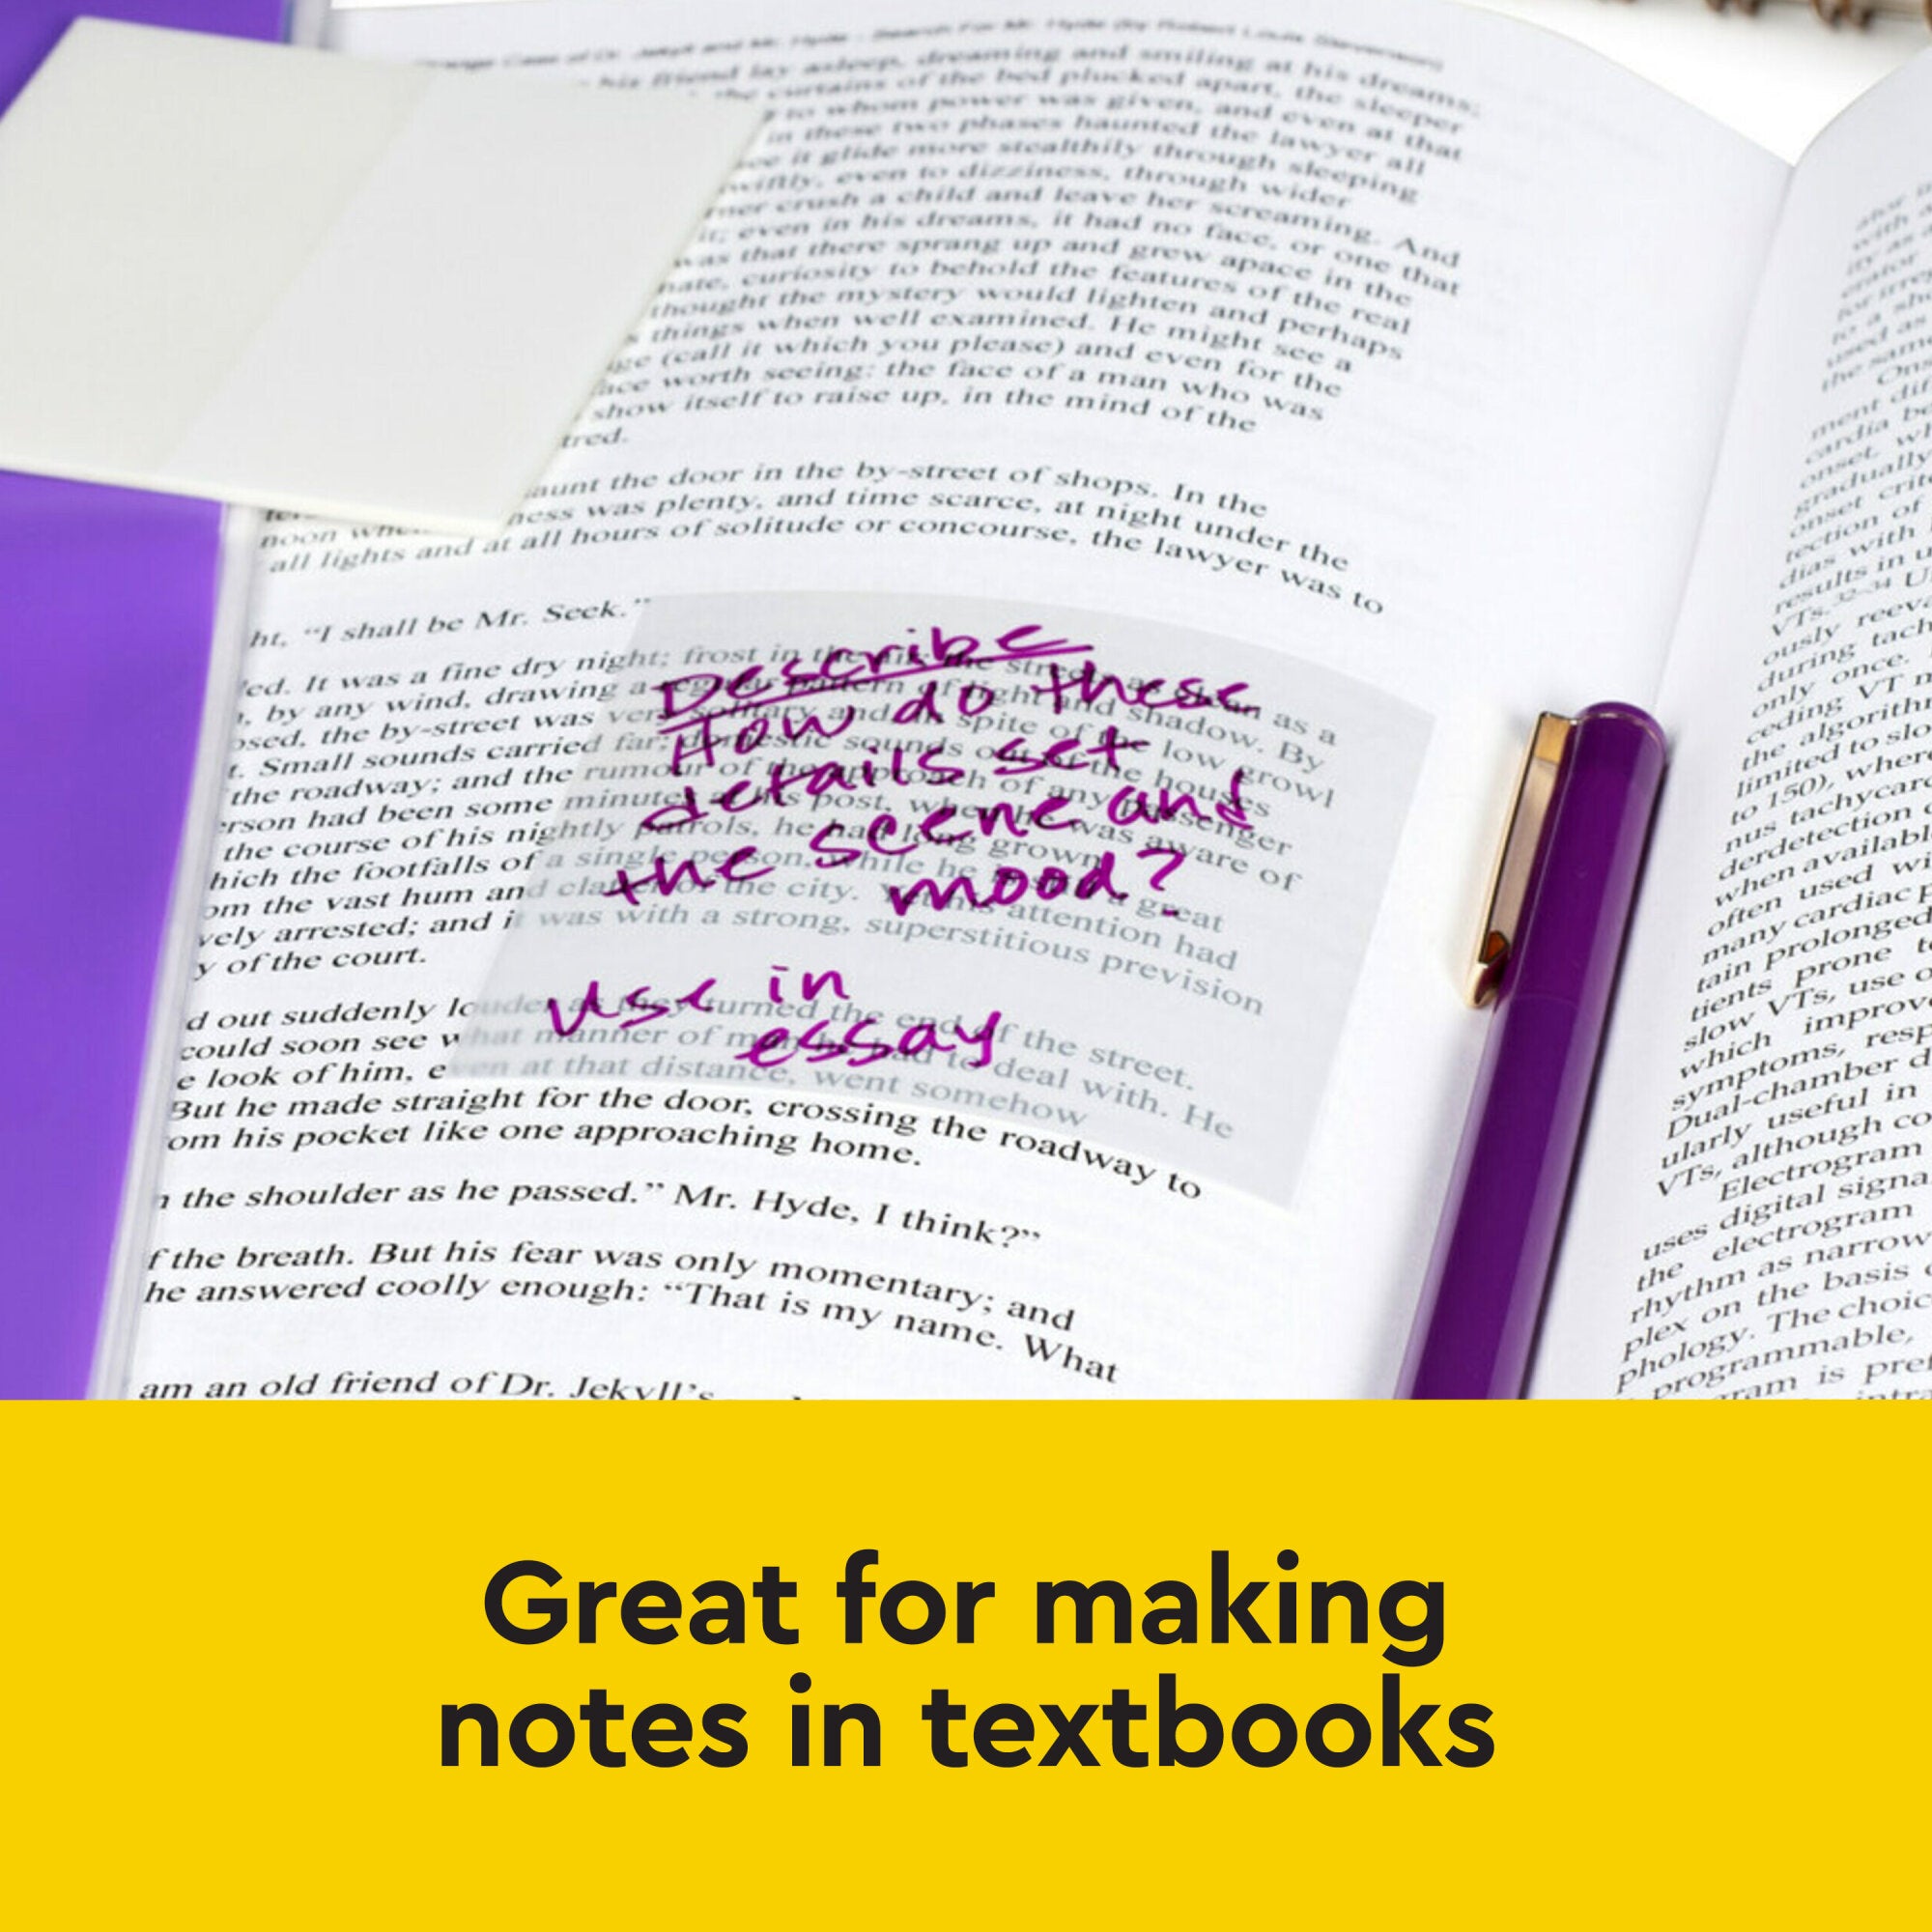 Strange Case of Dr. Jekyll and Mr. Hyde - Search For Mr. Hyde (by Robert Louis Stevenson)
his friend lay asleep, dreaming and smiling at his dreams;
the curtains of the bed plucked apart, the sleeper
to whom power was given, and even at that
in these two phases haunted the lawyer all
see it glide more stealthily through sleeping
wiftly, even to dizziness, through wider
ner crush a child and leave her screaming. And
it; even in his dreams, it had no face, or one that
was that there sprang up and grew apace in the
nate, curiosity to behold the features of the real
thought the mystery would lighten and perhaps
s things when well examined. He might see a
ge (call it which you please) and even for the
ace worth seeing: the face of a man who was
show itself to raise up, in the mind of the
tred.
aunt the door in the by-street of shops. In the
ness was plenty, and time scarce, at night under the
noon when
all lights and at all hours of solitude or concourse, the lawyer was to
ht, “I shall be Mr. Seek.”
ed. It was a fine dry night; frost in the air; the streets as clean as a
, by any wind, drawing a regular pattern of light and shadow. By
osed, the by-street was very solitary and in spite of the low growl
t. Small sounds carried far; domestic sounds out of the houses
the roadway; and the rumour of the approach of any passenger
erson had been some minutes at his post, when he was aware of
the course of his nightly patrols, he had long grown
hich the footfalls of a single person, while he is still a great
om the vast hum and clatter of the city. Yet his attention had
vely arrested; and it was with a strong, superstitious prevision
y of the court.
d out suddenly louder as they turned the end of the street.
could soon see what manner of man he had to deal with. He
e look of him, even at that distance, went somehow
But he made straight for the door, crossing the roadway to
om his pocket like one approaching home.
n the shoulder as he passed.” Mr. Hyde, I think?”
f the breath. But his fear was only momentary; and
he answered coolly enough: “That is my name. What
am an old friend of Dr. Jekyll's
Describe
How do these
details set
the scene and
mood?
Use in
essay
ment dif
cardia be
onset, wh
gradually
onset crite
tection of
dias with
results in u
VTs.32-34 U
ously reeva
during tach
only once.
ceding VT m
the algorithm
limited to slo
to 150), where
nus tachycard
derdetection
when available
often used wi
many cardiac p
tain prolonged
tients prone to
slow VTs, use o
which improv
symptoms, resp
Dual-chamber d
ularly useful in
VTs, although co
Electrogram
uses digital signa
the electrogram
rhythm as narrow
plex on the basis o
phology. The choic
programmable,
gram is pref
Great for making
notes in textbooks